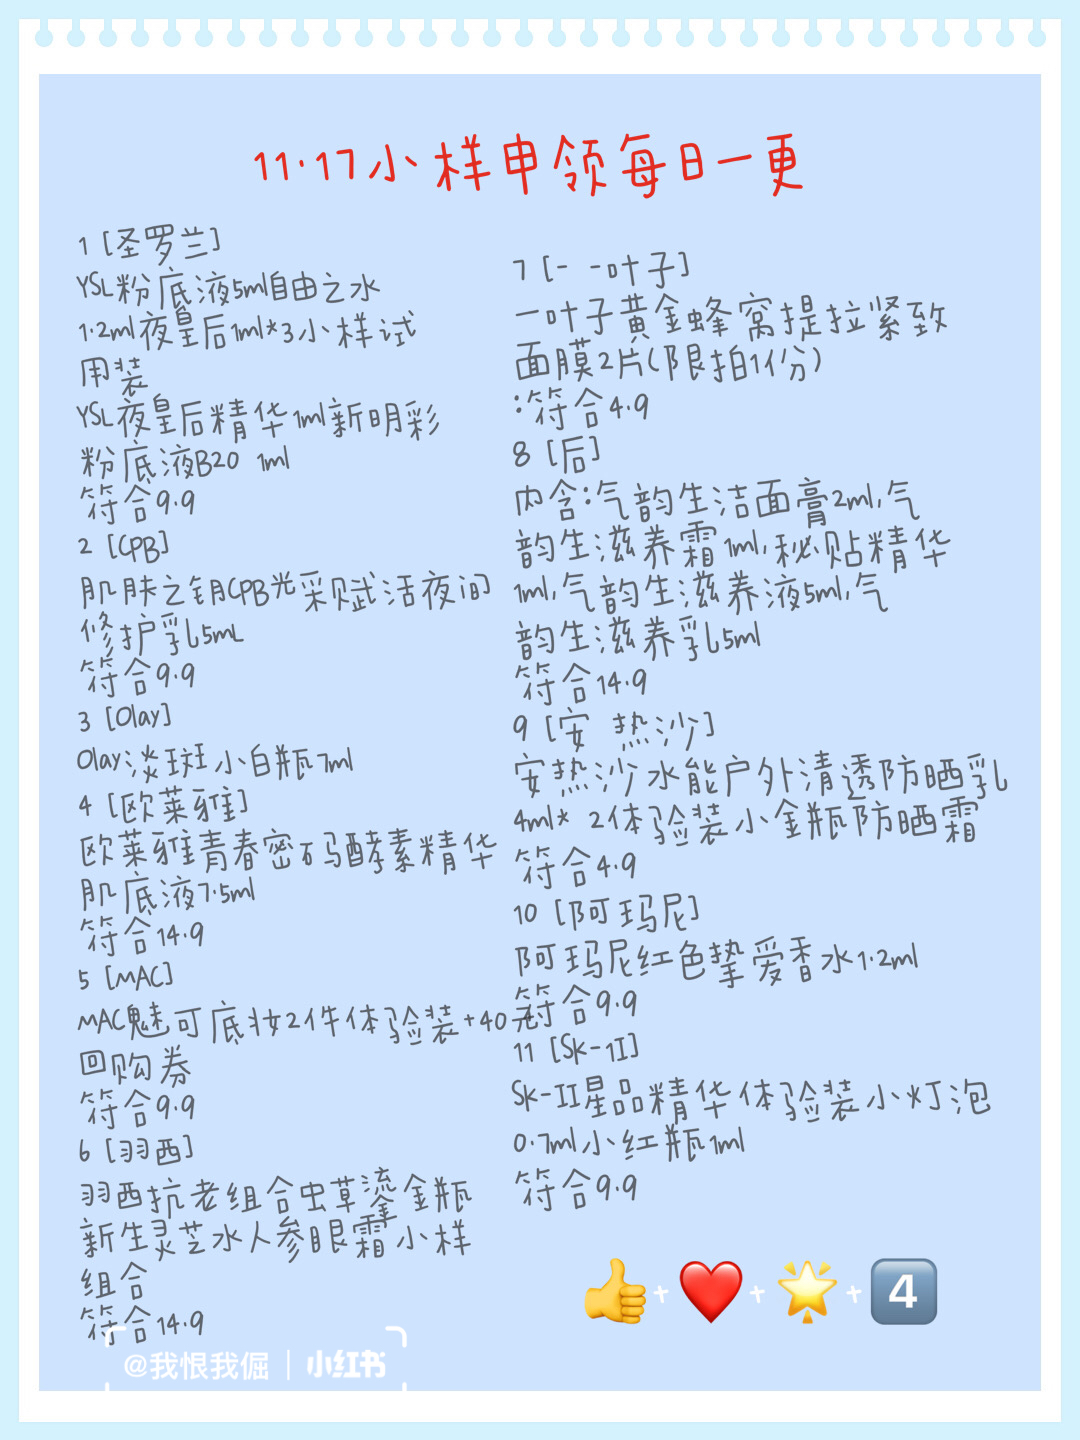 11.17小样申领每日一更
1 [圣罗兰]
YSL粉底液5ml自由之水
1.2ml夜皇后1ml*3小样试
用装
YSL夜皇后精华1ml新明彩
粉底液B20 1ml
符合9.9
2 [CPB]
肌肤之钥CPB光采赋活夜间
修护乳5mL
符合9.9
3 [Olay]
Olay淡斑小白瓶7ml
4 [欧莱雅]
欧莱雅青春密码酵素精华
肌底液7.5ml
符合14.9
5 [MAC]
MAC魅可底妆2件体验装+40元
回购券
符合9.9
6 [羽西]
羽西抗老组合虫草流金瓶
新生灵芝水人参眼霜小样
组合
符合14.9
7 [- -叶子]
一叶子黄金蜂窝提拉紧致
面膜2片(限拍1份)
:符合4.9
8 [后]
内含:气韵生洁面膏2ml,气
韵生滋养霜1ml,秘贴精华
1ml,气韵生滋养液5ml,气
韵生滋养乳5ml
符合14.9
9 [安 热沙]
安热沙水能户外清透防晒乳
4ml* 2体验装小金瓶防晒霜
符合4.9
10 [阿玛尼]
阿玛尼红色挚爱香水1.2ml
符合9.9
11 [Sk-1I]
Sk-II星品精华体验装小灯泡
0.7ml小红瓶1ml
符合9.9
👍+❤️+🌟+4️⃣
@我恨我倔 | 小红书